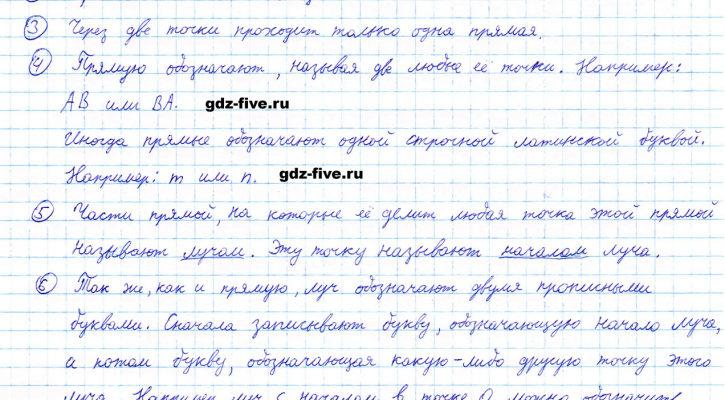 3 Через две точки проходит только одна прямая.
4 Прямую обозначают, называя две любые её точки. Например:
AB или BA. gdz-five.ru
Иногда прямые обозначают одной строчной латинской буквой.
Например: m или n. gdz-five.ru
5 Части прямой, на которые её делит любая точка этой прямой
называют лучам. Эту точку называют началам луча.
6 Так же, как и прямую, луч обозначают двумя прописными
буквами. Сначала записывают букву, обозначающую начало луча,
а потом букву, обозначающая какую-либо другую точку этого
луча. Например луч с началом в точке O можно обозначить